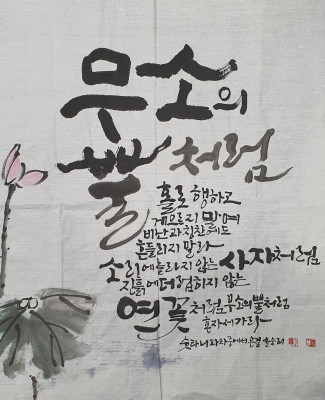 무소의
뿔처럼
홀로 행하고
게으르지 말며
비난과 칭찬에도
흔들리지 말라
소리에 놀라지 않는 사자처럼
진흙에 더럽히지 않는
연꽃처럼 무소의 뿔처럼
혼자서 가라
숫타니파타중에서